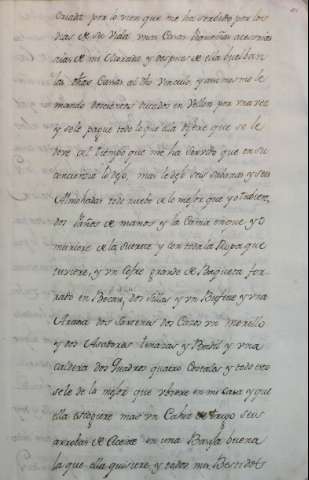 Criada por lo vien que me ha servido por los
dias de su vida unas Casas pequeñas accesorias
a las de mi morada y despues de ella buelban
las dhas Casas al dho Vinculo, y assimesmo le
mando doscientos ducados en Vellon por una vez
y se le pague todo lo que ella dixere que se le
deve del tiempo que me ha servido que en su
conciencia lo dejo, mas le dejo seis sabanas y seis
Almohadas todo nuebo de lo mejor que yo tubiere,
dos paños de manos y la Cama en que yo
muriere de la suerte y con toda la Ropa que
tuviere, y un Cofre grande de Baqueta fo-
rrado en Bocaci, dos sillas y un Bufete y una
Arca dos Sartenes dos Cazos un
y dos Asadores tenazas y Badil y una
caldera dos Quadros quatro Costales y todo esto
se le de lo mejor que ubiere en mi casa y que
ella escogiere mas un Cahiz de trigo seis
arrobas de Aceite en una Basija buena
la que ella quisiere, y todos mis Bestidos